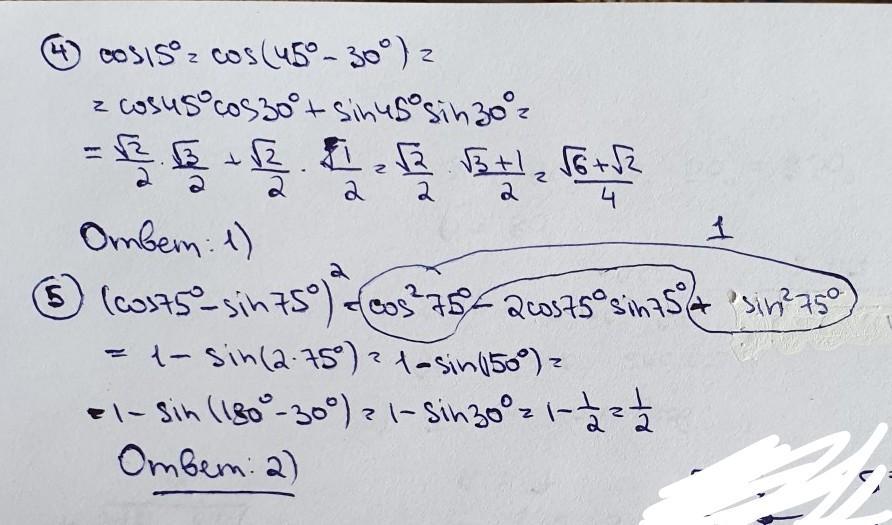 ④ cos15° = cos(45° - 30°) =
= cos45°cos30° + sin45°sin30° =
= √2/2 · √3/2 + √2/2 · 1/2 = √2/2 · (√3+1)/2 = (√6+√2)/4
Ответ: 1)
1
⑤ (cos75° - sin75°)² = cos²75° - 2cos75°sin75° + sin²75°
= 1 - sin(2·75°) = 1 - sin(150°) =
= 1 - sin(180° - 30°) = 1 - sin30° = 1 - 1/2 = 1/2
Ответ: 2)